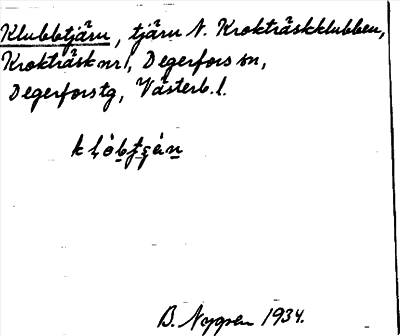 Klubbtjärn, tjärn N. Krokträskklubben,
Krokträsk nr 1, Degerfors sn,
Degerfors tg, Västerb. l.
B. Nygren 1934.